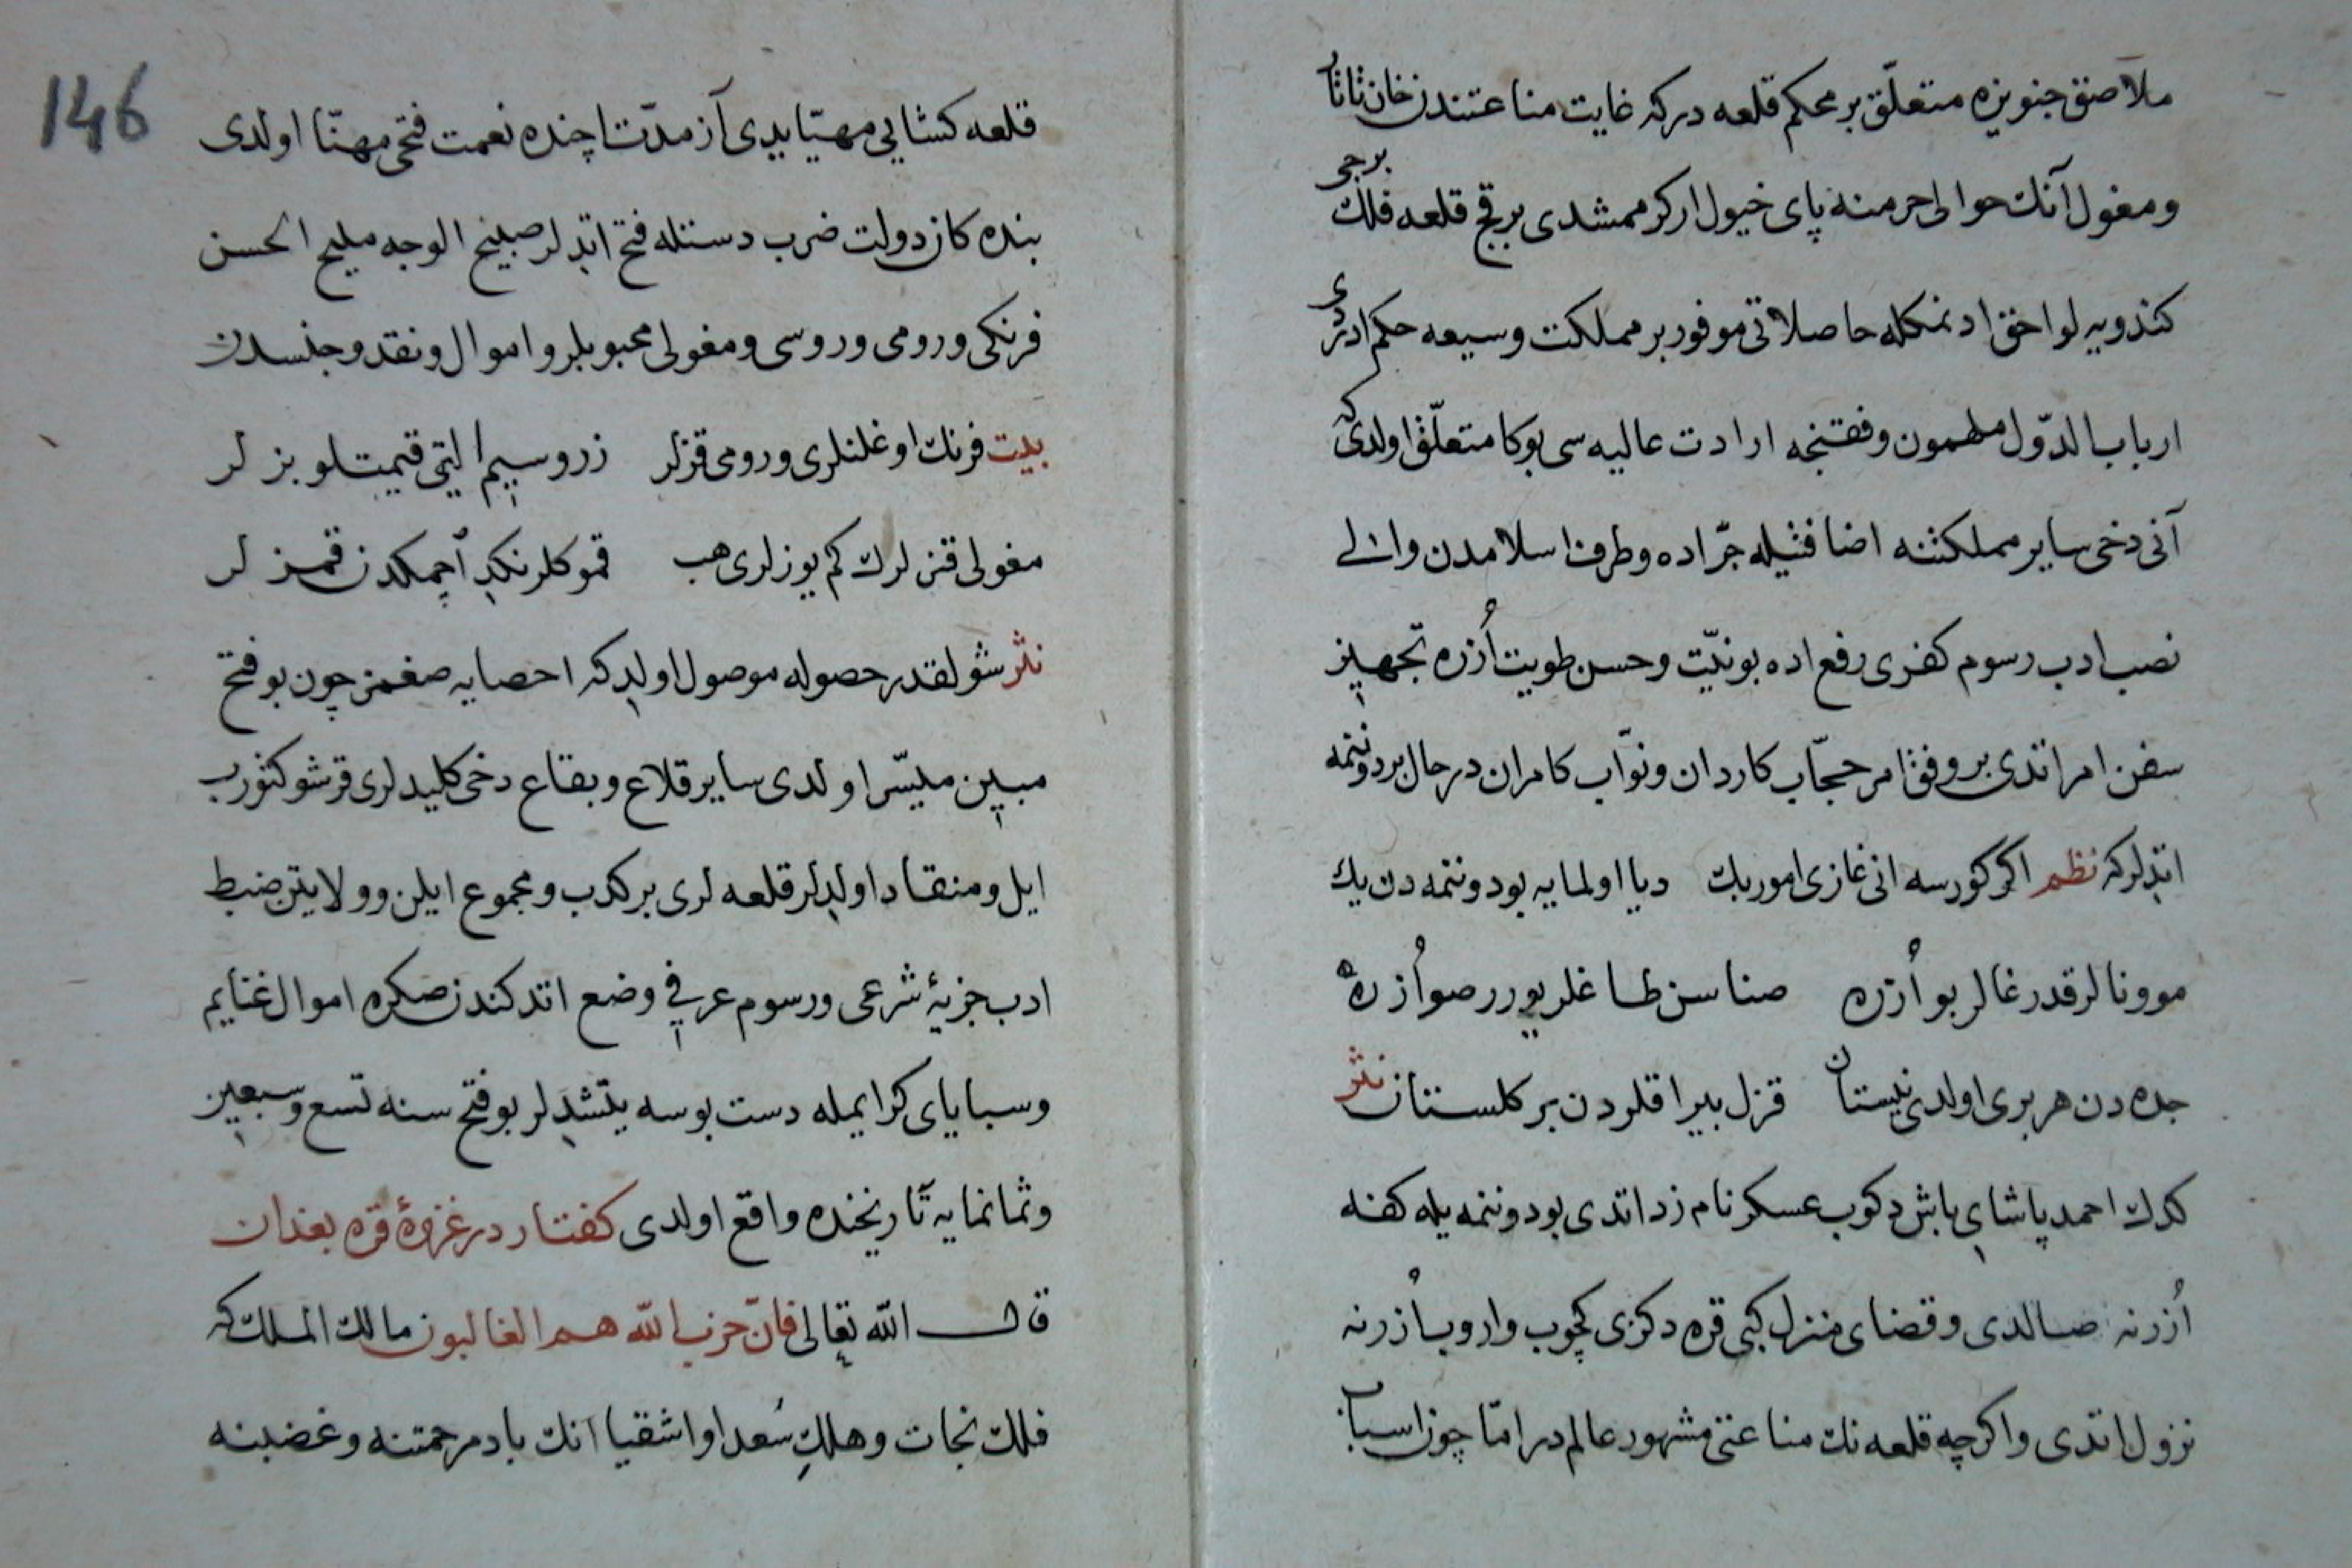 ملاصق جنويزه متعلّق بر محكم قلعه دركه غايت مناعتندن خان تاتار
ومغول آنك حوالى حرمنه پاى خيول اركرممشدى بر قچ قلعه فلك برجى
كندويه لواحق ادنمكله حاصلاتى موفور بر مملكت وسيعه حكم ادردى
ارباب الدّول ملهمون وفقنجه ارادت عاليه سى بوكا متعلّق اولدى كه
آنى دخى ساير مملكتنه اضافتيله جرّ اده وطرف اسلامدن والى
نصب ادب رسوم كفرى رفع اده بو نيّت وحسن طويت اُزره تجهيز
سفن امر اتدى بر وفق امر حجّاب كاردان ونوّاب كامران در حال بر دوننمه
اتدلر كه نظم اكر كورسه انى غازى امور بك ديا اولمايه بو دوننمه دن يك
موونالر قدرغالر بو اُزره صناسن طاغلر يورر صو اُزره
جده دن هر برى اولدى نيستان قزل بيراقلردن بر كلستان نثر
كدك احمد پاشاى باش دكوب عسكر نامزد اتدى بو دوننمه يله كفه
اُزرنه صالدى وقضاى منزل كبى قره دكزى كچوب واروب اُزرنه
نزول اتدى واكرچه قلعه نك مناعتى مشهور عالم در امّا چون اسباب
146
قلعه كشايى مهيّا يدى آز مدّت اچنده نعمت فتحى مهنّا اولدى
بنده كان دولت ضرب دستله فتح اتدلر صبيح الوجه مليح الحسن
فرنكى ورومى وروسى ومغولى محبوبلر واموال ونقد وجنسدن
بيت فرنك اوغلنلرى ورومى قزلر زر وسيم التى قيمتلو بزلر
مغولى قزلرك كم يوزلرى هب قمو كلرنكدر اچمكدن قمزلر
نثر شولقدر حصوله موصول اولدى كه احصايه صغمز چون بو فتح
مبين ميسّر اولدى ساير قلاع وبقاع دخى كليدلرى قرشو كتورب
ايل ومنقاد اولدلر قلعه لرى بركدب ومجموع ايلن وولايتن ضبط
ادب جزيهٔ شرعى ورسوم عرفى وضع اتدكندن صكره اموال غنايم
وسباياى كرايمله دست بوسه يتشدلر بو فتح سنه تسع وسبعين
وثمانمايه تاريخنده واقع اولدى كفتار در غزوهٔ قره بغدان
قال الله تعالى فانّ حزب الله هم الغالبون مالك الملك كه
فلك نجات وهلك سُعدا واشقيا آنك باد مرحمتنه وغضبنه